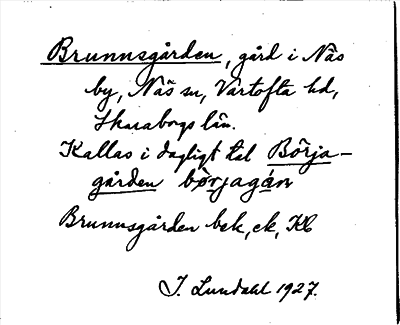 Brunnsgården, gård i Näs
by, Näs sn, Vartofta hd,
Skaraborgs län.
Kallas i dagligt tal Börja-
gården börjagán
Brunnsgården bek, ek, Kb
J. Lundahl 1927.